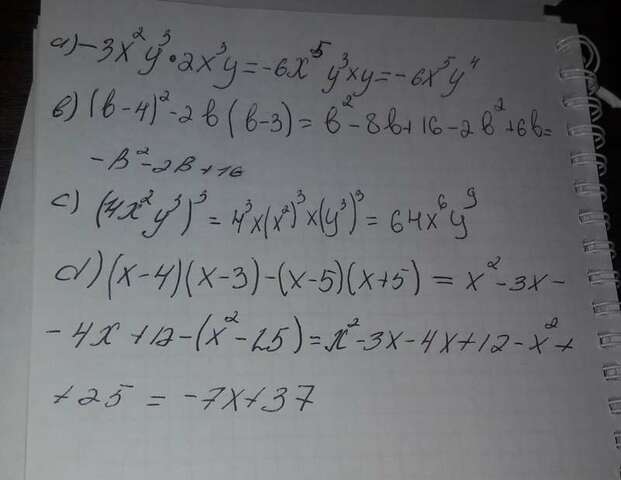 a) -3x²y³·2x³y = -6x⁵y³×y = -6x⁵y⁴
в) (в-4)²-2в(в-3) = в²-8в+16-2в²+6в=
-в²-2в+16
c) (4x²y³)³ = 4³×(x²)³×(y³)³ = 64x⁶y⁹
d) (x-4)(x-3)-(x-5)(x+5) = x²-3x-
-4x+12-(x²-25)=x²-3x-4x+12-x²+
+25 = -7x+37